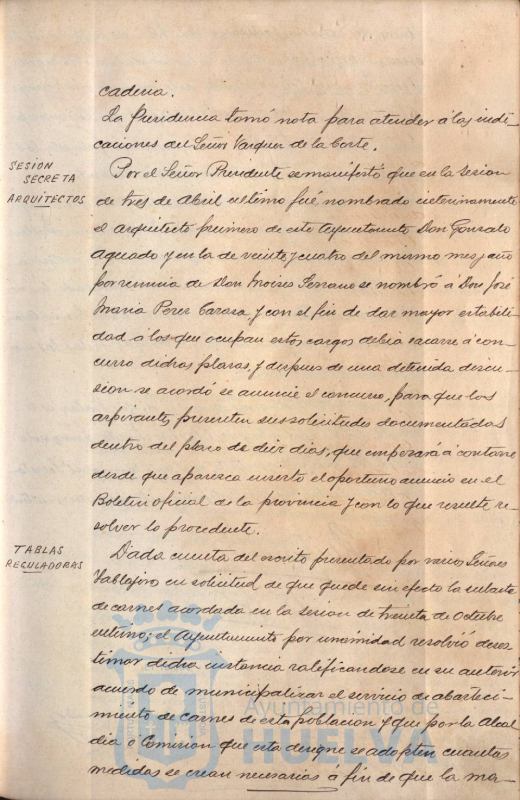 caderia.
La Presidencia tomó nota para atender á las indi-
caciones del Señor Vazquez de la Corte.
SESION
SECRETA
ARQUITECTOS
Por el Señor Presidente se manifestó que en la sesion
de tres de Abril ultimo fué nombrado interinamente
el arquitecto primero de este Ayuntamiento Don Gonzalo
Aguado y en la de veinte y cuatro del mismo mes y año
por renuncia de Don Moises Serrano se nombró á Don José
Maria Perez Carasa, y con el fin de dar mayor estabili-
dad á los que ocupan estos cargos debia sacarse á con-
curso dichas plazas, y despues de una detenida discu-
sion se acordó se anuncie el concurso, para que los
aspirantes presenten sus solicitudes documentadas
dentro del plazo de diez dias, que empezará á contarse
desde que aparezca inserto el oportuno anuncio en el
Boletin oficial de la provincia y con lo que resulte re-
solver lo procedente.
TABLAS
REGULADORAS
Dada cuenta del escrito presentado por varios Señores
Tablajeros en solicitud de que quede sin efecto la subasta
de carnes acordada en la sesion de treinta de Octubre
ultimo; el Ayuntamiento por unanimidad resolvió deses-
timar dicha instancia ratificandose en su anterior
acuerdo de municipalizar el servicio de abasteci-
miento de carnes de esta poblacion y que por la Alcal-
dia o Comision que esta designe se adopten cuantas
medidas se crean necesarias á fin de que la mar-
Ayuntamiento de
HUELVA